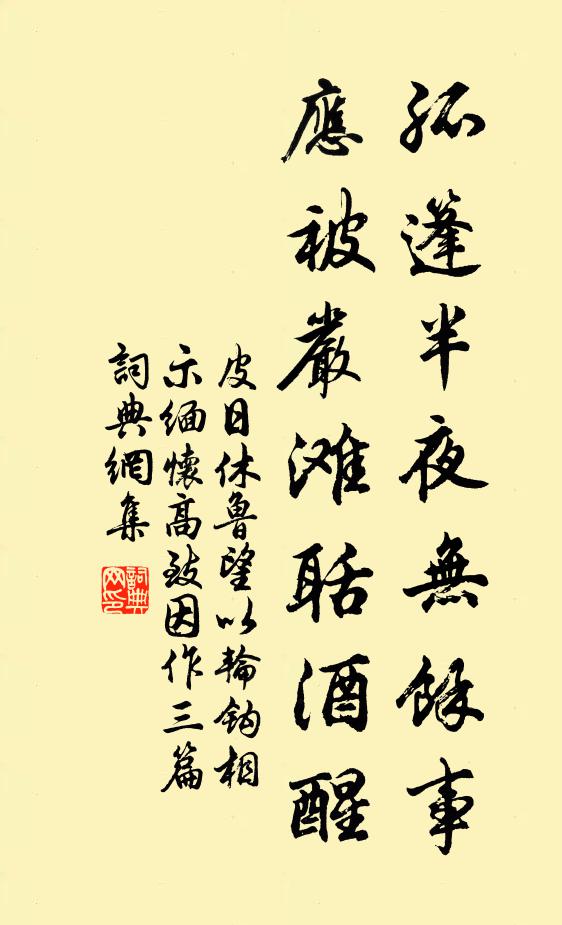 孤蓬半夜無餘事
應被嚴滩聒酒醒
皮日休魯望以輪鈎相
示緬懷高致因作三篇
詞典網集
詞典網印